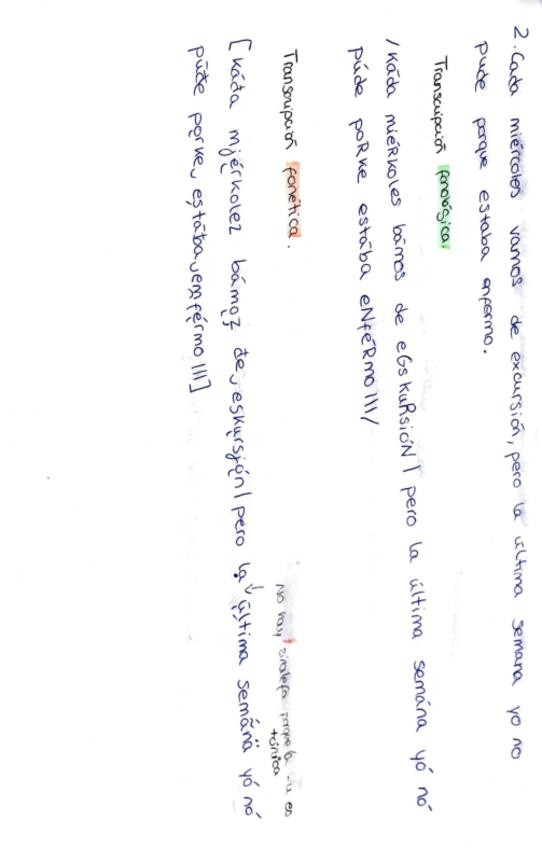 2. Cada miércoles vamos de excursión, pero la última semana yo no
pude porque estaba enfermo.
Transcripción fonológica.
/káda miéRkoles bámos de eGskuRsióN | pero la última semána yó nó
púde poRke estába eNféRmo|||/
Transcripción fonética.
No hay sinalefa porque la u es
tónica
[káđa mjérkolez bámoz đe‿eskursjón| pero la última semãna yó nó
púđe porke‿estába‿emférmo|||]